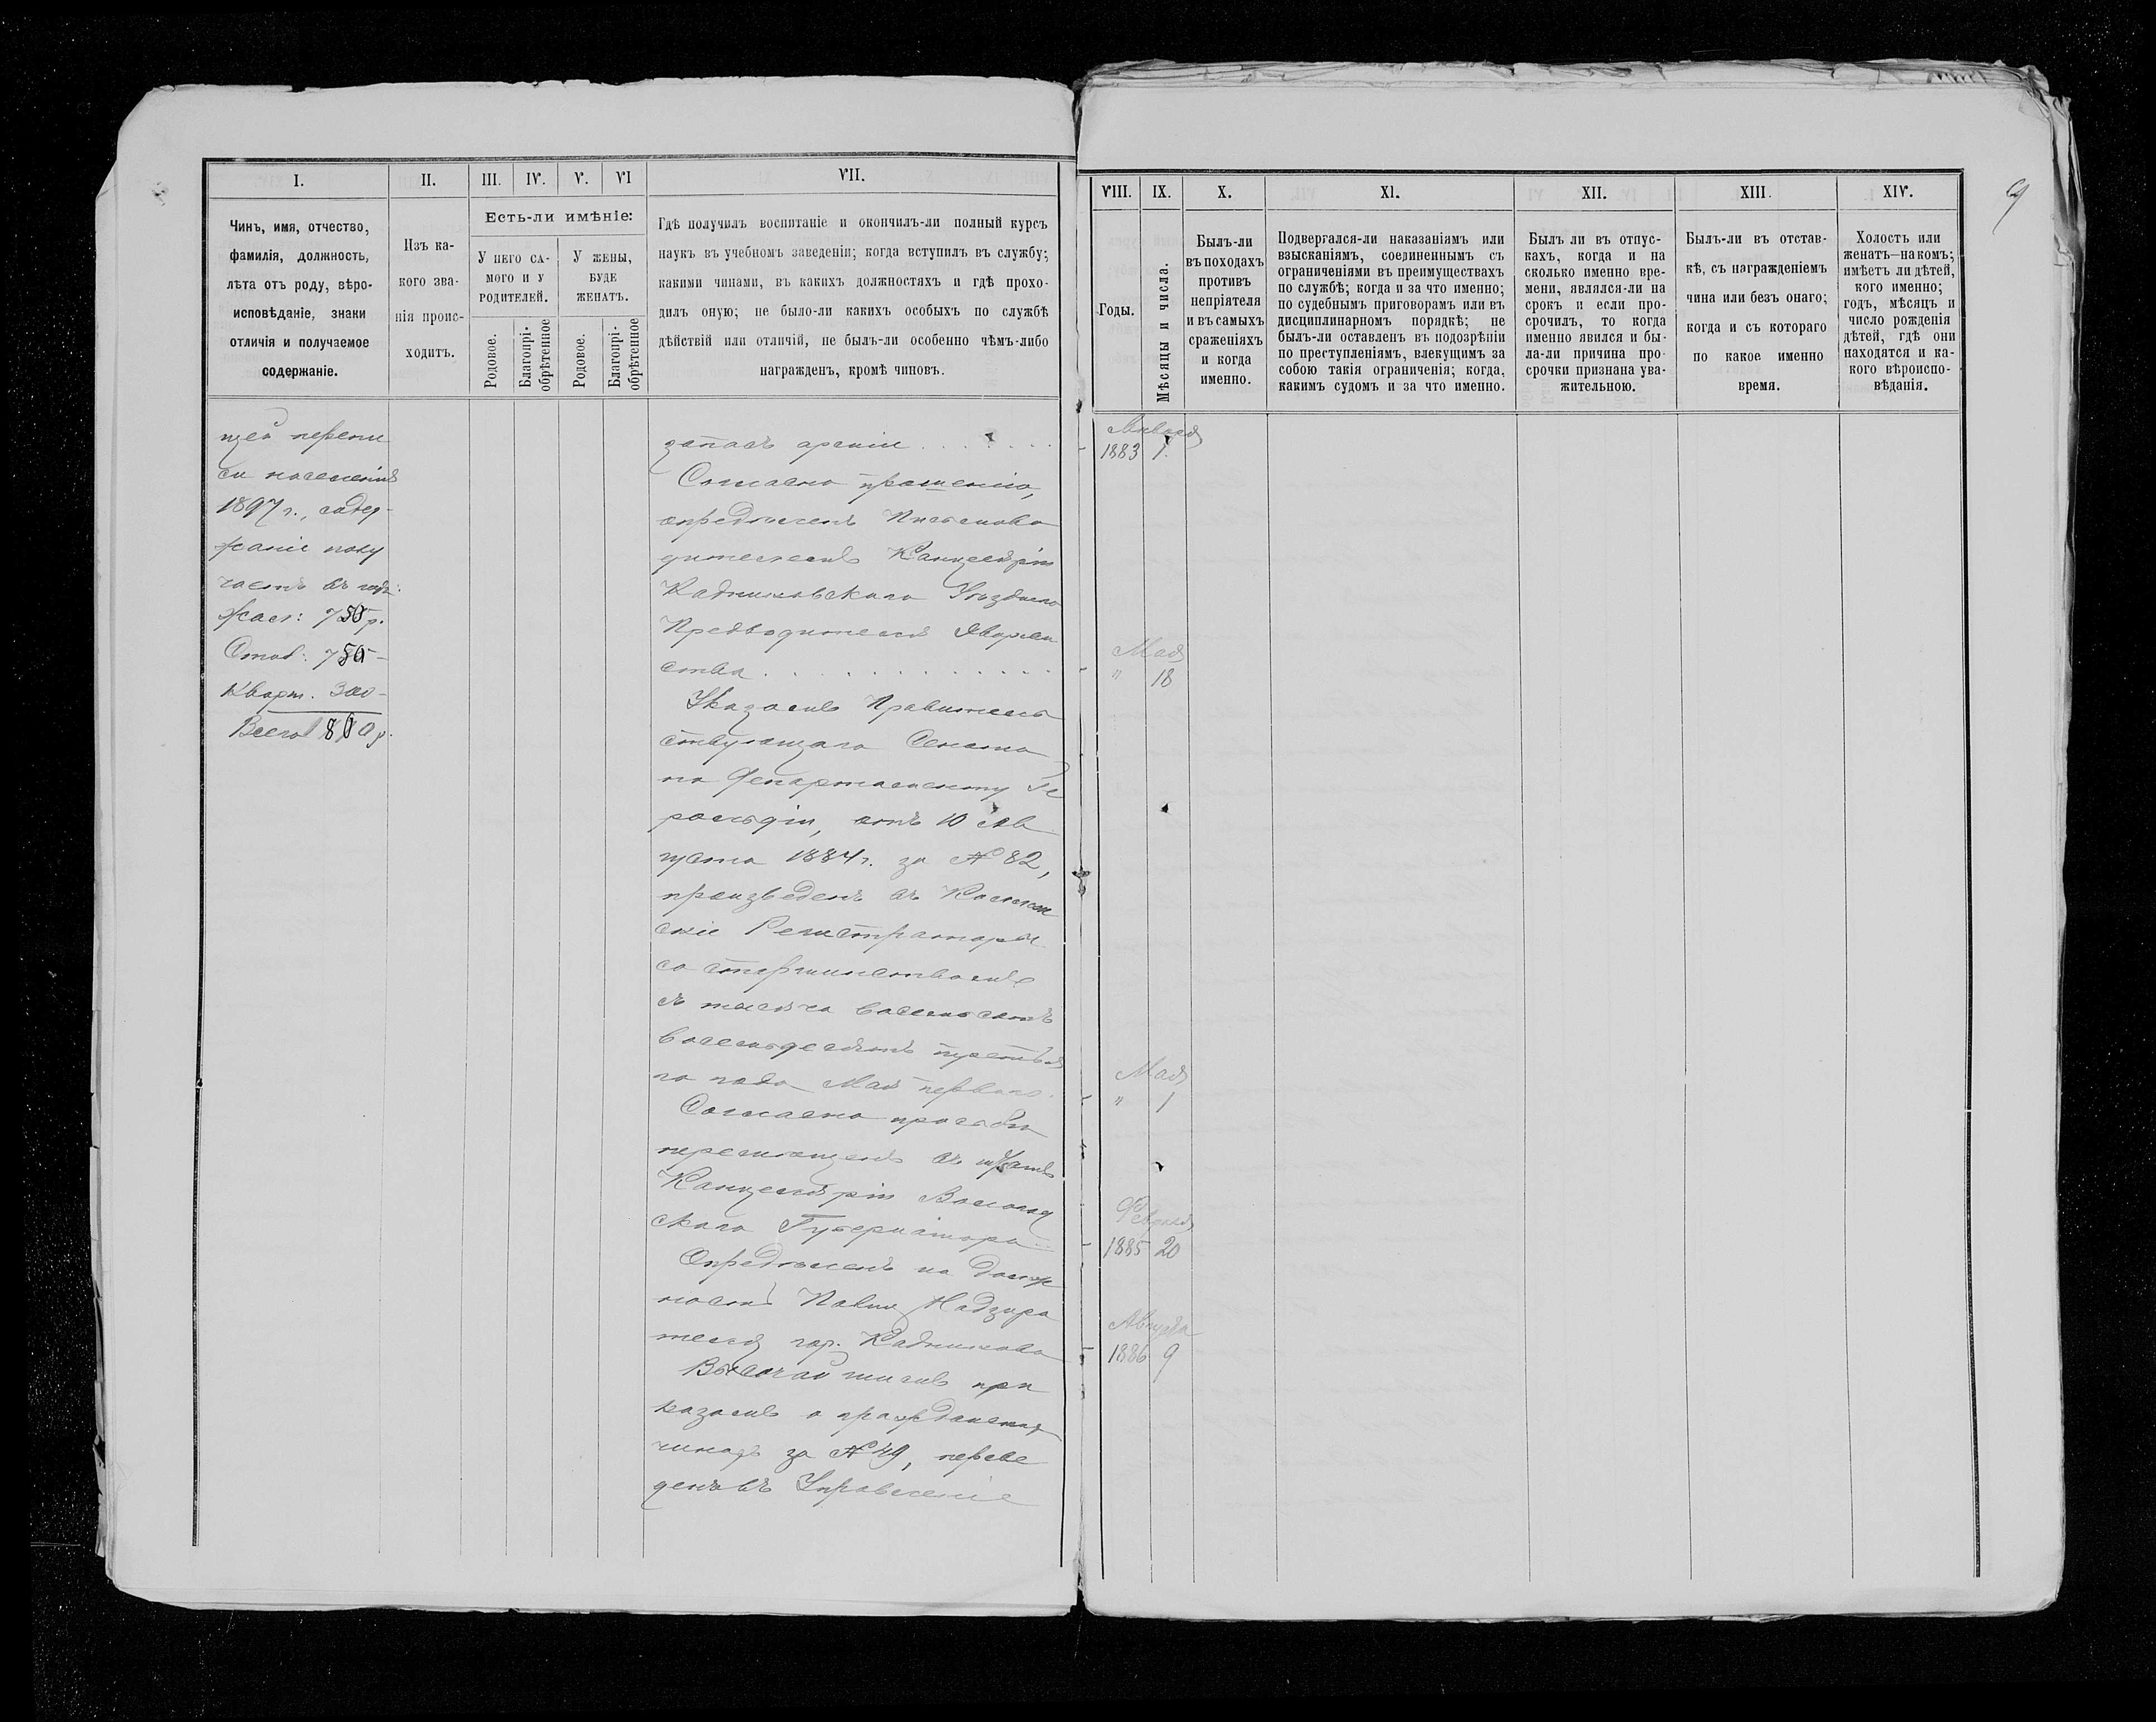 I.
II.
III.
IV.
V.
VI
VII.
Чинъ, имя, отчество,
фамилія, должность,
лѣта отъ роду, вѣро-
исповѣданіе, знаки
отличія и получаемое
содержаніе.
Изъ ка-
кого зва-
нія проис-
ходитъ.
Есть-ли имѣніе:
У него са-
мого и у
родителей.
У жены,
буде
женатъ.
Родовое.
Благопрі-
обрѣтенное
Родовое.
Благопрі-
обрѣтенное
Гдѣ получилъ воспитаніе и окончилъ-ли полный курсъ
наукъ въ учебномъ заведеніи; когда вступилъ въ службу;
какими чинами, въ какихъ должностяхъ и гдѣ прохо-
дилъ оную; не было-ли какихъ особыхъ по службѣ
дѣйствій или отличій, не былъ-ли особенно чѣмъ-либо
награжденъ, кромѣ чиновъ.
щей перепи
си населенія
1897 г., содер-
жаніе полу
чаетъ въ годъ:
Жал: 750 р.
Стол: 750 -
Кварт. 300 -
Всего 1800 р.
запасъ арміи . . . . . . .
Согласно прошенію,
опредѣленъ Письмово
дителемъ Канцеляріи
Кадниковскаго Уѣзднаго
Предводителя Дворян
ства . . . . . . . . . . .
Указомъ Правитель
ствующаго Сената
по Департаменту Ге
рольдіи, отъ 10 Ав
густа 1884 г. за № 82,
произведенъ въ Коллеж
скіе Регистраторы
со старшинствомъ
съ тысяча восемьсотъ
восемьдесятъ третья
го года Мая перваго.
Согласно просьбы
перемѣщенъ въ штатъ
Канцеляріи Вологод
скаго Губернатора
Опредѣленъ на долж
ность Полиц. Надзира
теля гор. Кадникова
Высочайшимъ при
казомъ о гражданскихъ
чинахъ за № 49, переве
денъ въ Управленіе
VIII.
IX.
X.
XI.
XII.
XIII.
XIV.
9
Годы.
Мѣсяцы и числа.
Былъ-ли
въ походахъ
противъ
непріятеля
и въ самыхъ
сраженіяхъ
и когда
именно.
Подвергался-ли наказаніямъ или
взысканіямъ, соединеннымъ съ
ограниченіями въ преимуществахъ
по службѣ; когда и за что именно;
по судебнымъ приговорамъ или въ
дисциплинарномъ порядкѣ; не
былъ-ли оставленъ въ подозрѣніи
по преступленіямъ, влекущимъ за
собою такія ограниченія; когда,
какимъ судомъ и за что именно.
Былъ ли въ отпус-
кахъ, когда и на
сколько именно вре-
мени, являлся-ли на
срокъ и если про-
срочилъ, то когда
именно явился и бы-
ла-ли причина про-
срочки признана ува-
жительною.
Былъ-ли въ отстав-
кѣ, съ награжденіемъ
чина или безъ онаго;
когда и съ котораго
по какое именно
время.
Холостъ или
женатъ—на комъ;
имѣетъ ли дѣтей,
кого именно;
годъ, мѣсяцъ и
число рожденія
дѣтей, гдѣ они
находятся и ка-
кого вѣроиспо-
вѣданія.
Января
1883 1.
Мая
" 18
Мая
" 1
Февраля
1885 20
Августа
1886 9